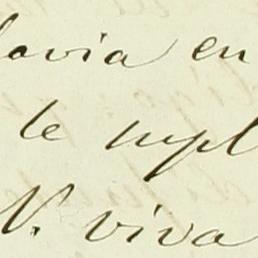 lavia en
te supl
V. viva